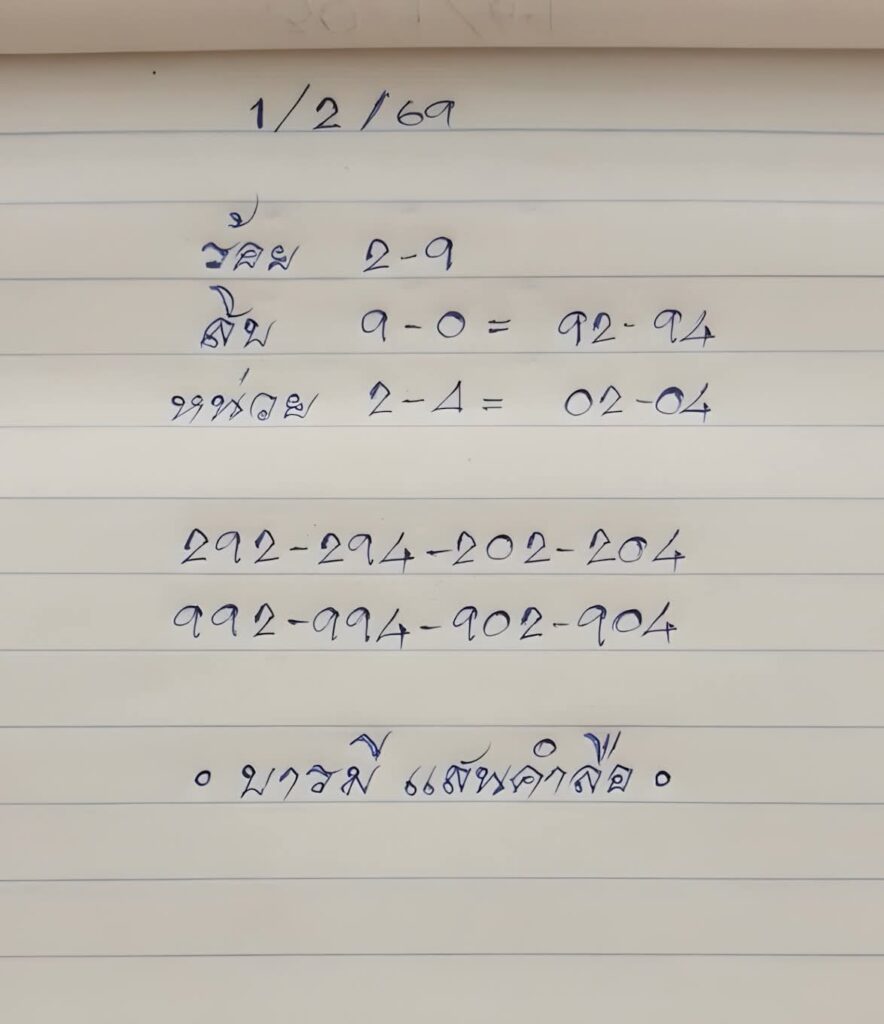 1/2/69
ร้อย 2-9
สิบ 9-0 = 92-94
หน่วย 2-4 = 02-04
292-294-202-204
992-994-902-904
° บารมี แสนคำลือ °